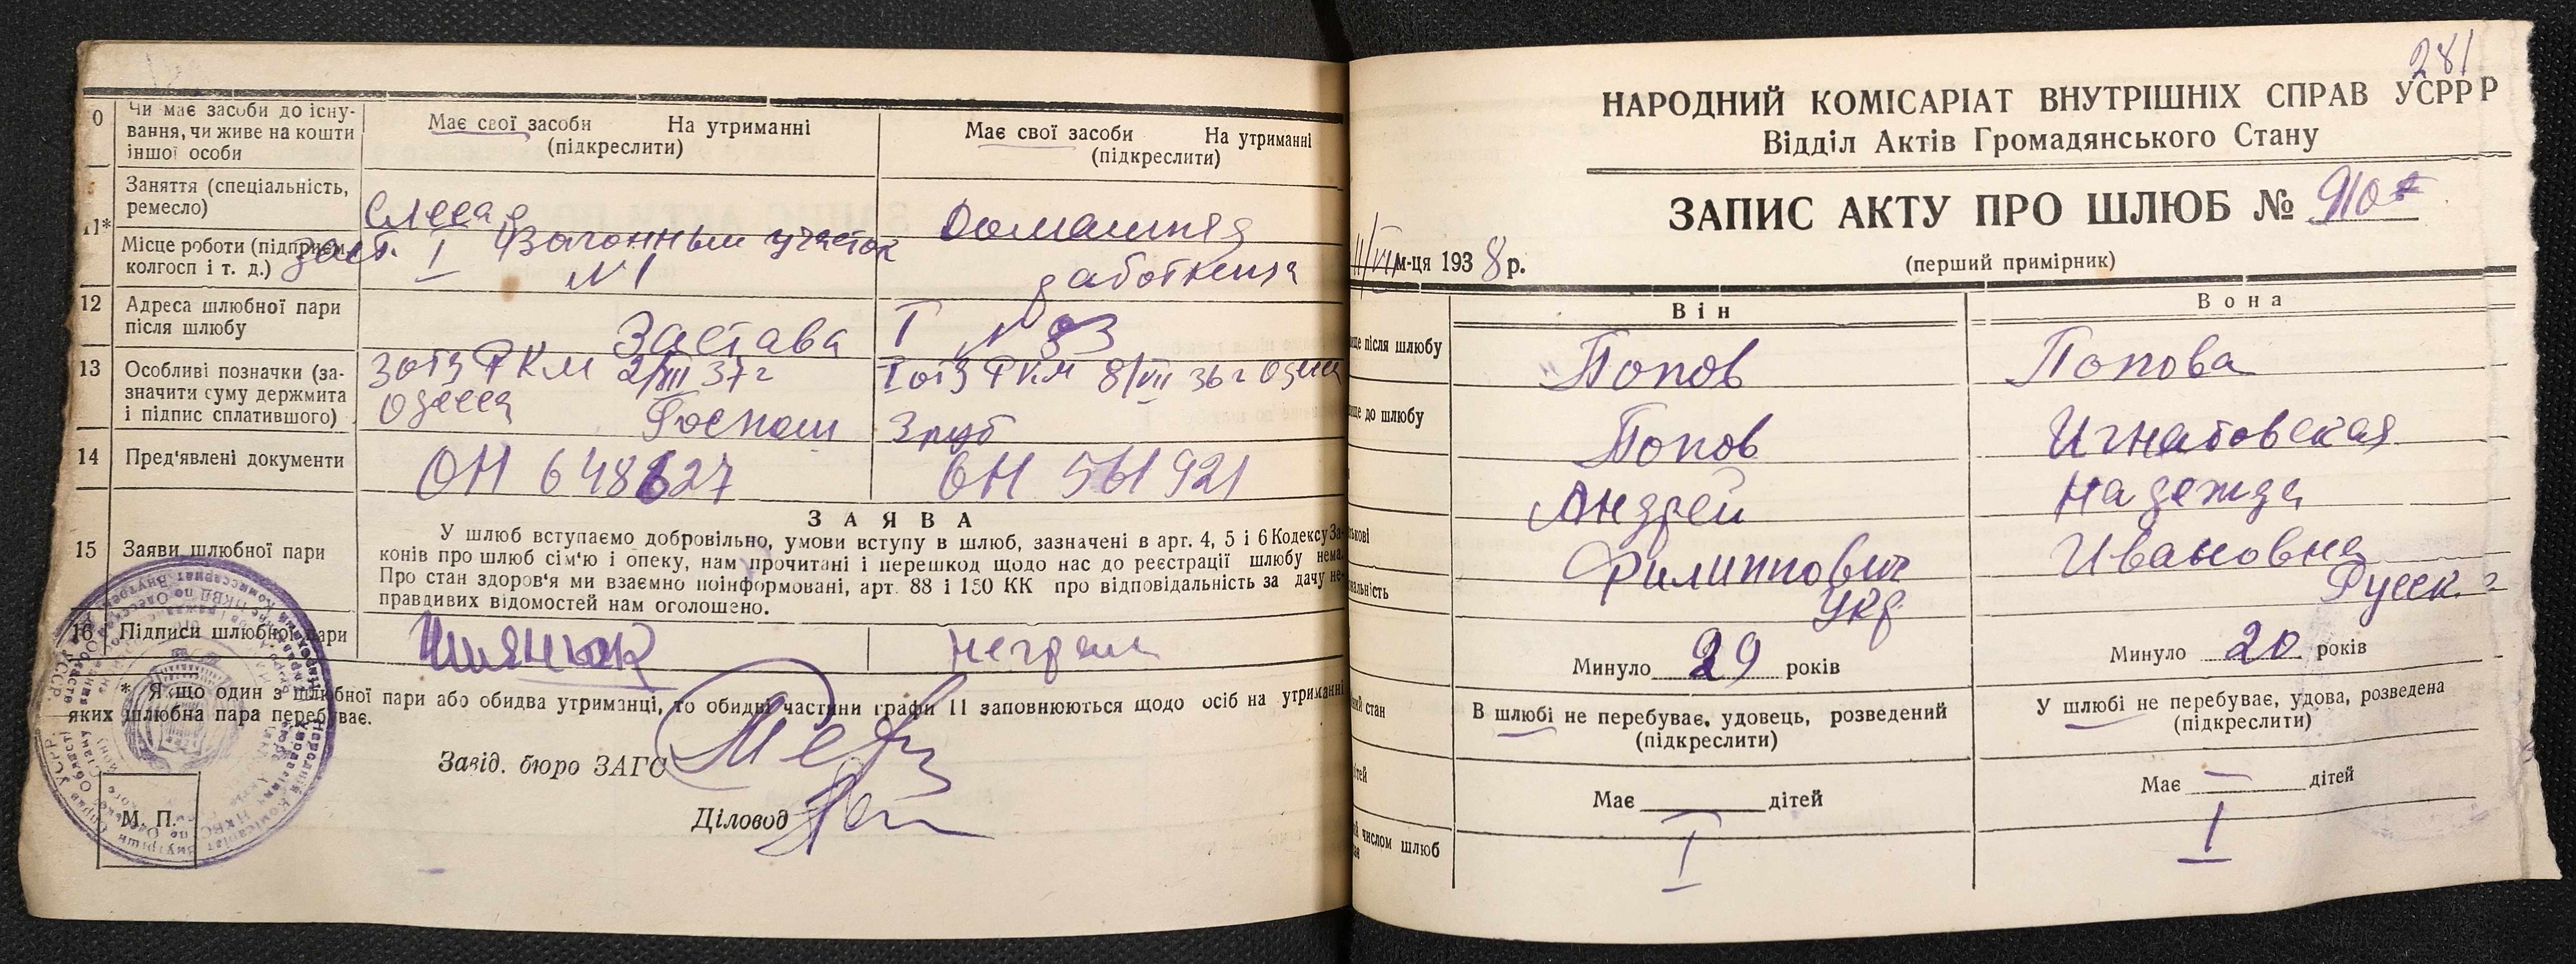 0
Чи має засоби до існу-
вання, чи живе на кошти
іншої особи
Має свої засоби На утриманні
(підкреслити)
Має свої засоби На утриманні
(підкреслити)
11*
Заняття (спеціальність,
ремесло)
Слесар
Домашняя
работница
Місце роботи (підприєм.
колгосп і т. д.)
заст. I Вагонный участок
N 1
12
Адреса шлюбної пари
після шлюбу
Застава I N 83
13
Особливі позначки (за-
значити суму держмита
і підпис сплатившого)
3 отд РКМ 2/III 37 г
Одесса
Госпош
I отд РКМ 8/VII 36 г Одесса
3 руб
14
Пред'явлені документи
ОН 648627
ОН 561921
15
Заяви шлюбної пари
ЗАЯВА
У шлюб вступаємо добровільно, умови вступу в шлюб, зазначені в арт. 4, 5 і 6 Кодексу За-
конів про шлюб сім'ю і опеку, нам прочитані і перешкод щодо нас до реєстрації шлюбу нема.
Про стан здоров'я ми взаємно поінформовані, арт. 88 і 150 КК про відповідальність за дачу не-
правдивих відомостей нам оголошено.
16
Підписи шлюбної пари
неграм
* Якщо один з шлюбної пари або обидва утриманці, то обидві частини графи 11 заповнюються щодо осіб на утриманні
яких шлюбна пара перебуває.
Завід. бюро ЗАГС
Діловод
М. П.
281
НАРОДНИЙ КОМІСАРІАТ ВНУТРІШНІХ СПРАВ УСРР Р
Відділ Актів Громадянського Стану
ЗАПИС АКТУ ПРО ШЛЮБ № 910
11/VI м-ця 1938 р.
(перший примірник)
Він
Вона
ще після шлюбу
Попов
Попова
ще до шлюбу
Попов
Игнатовская
Андрей
Надежда
ькові
Филиппович
Ивановна
нальність
Укр
Русск.
Минуло 29 років
Минуло 20 років
ний стан
В шлюбі не перебуває, удовець, розведений
(підкреслити)
У шлюбі не перебуває, удова, розведена
(підкреслити)
ітей
Має дітей
Має — дітей
числом шлюб
I
I